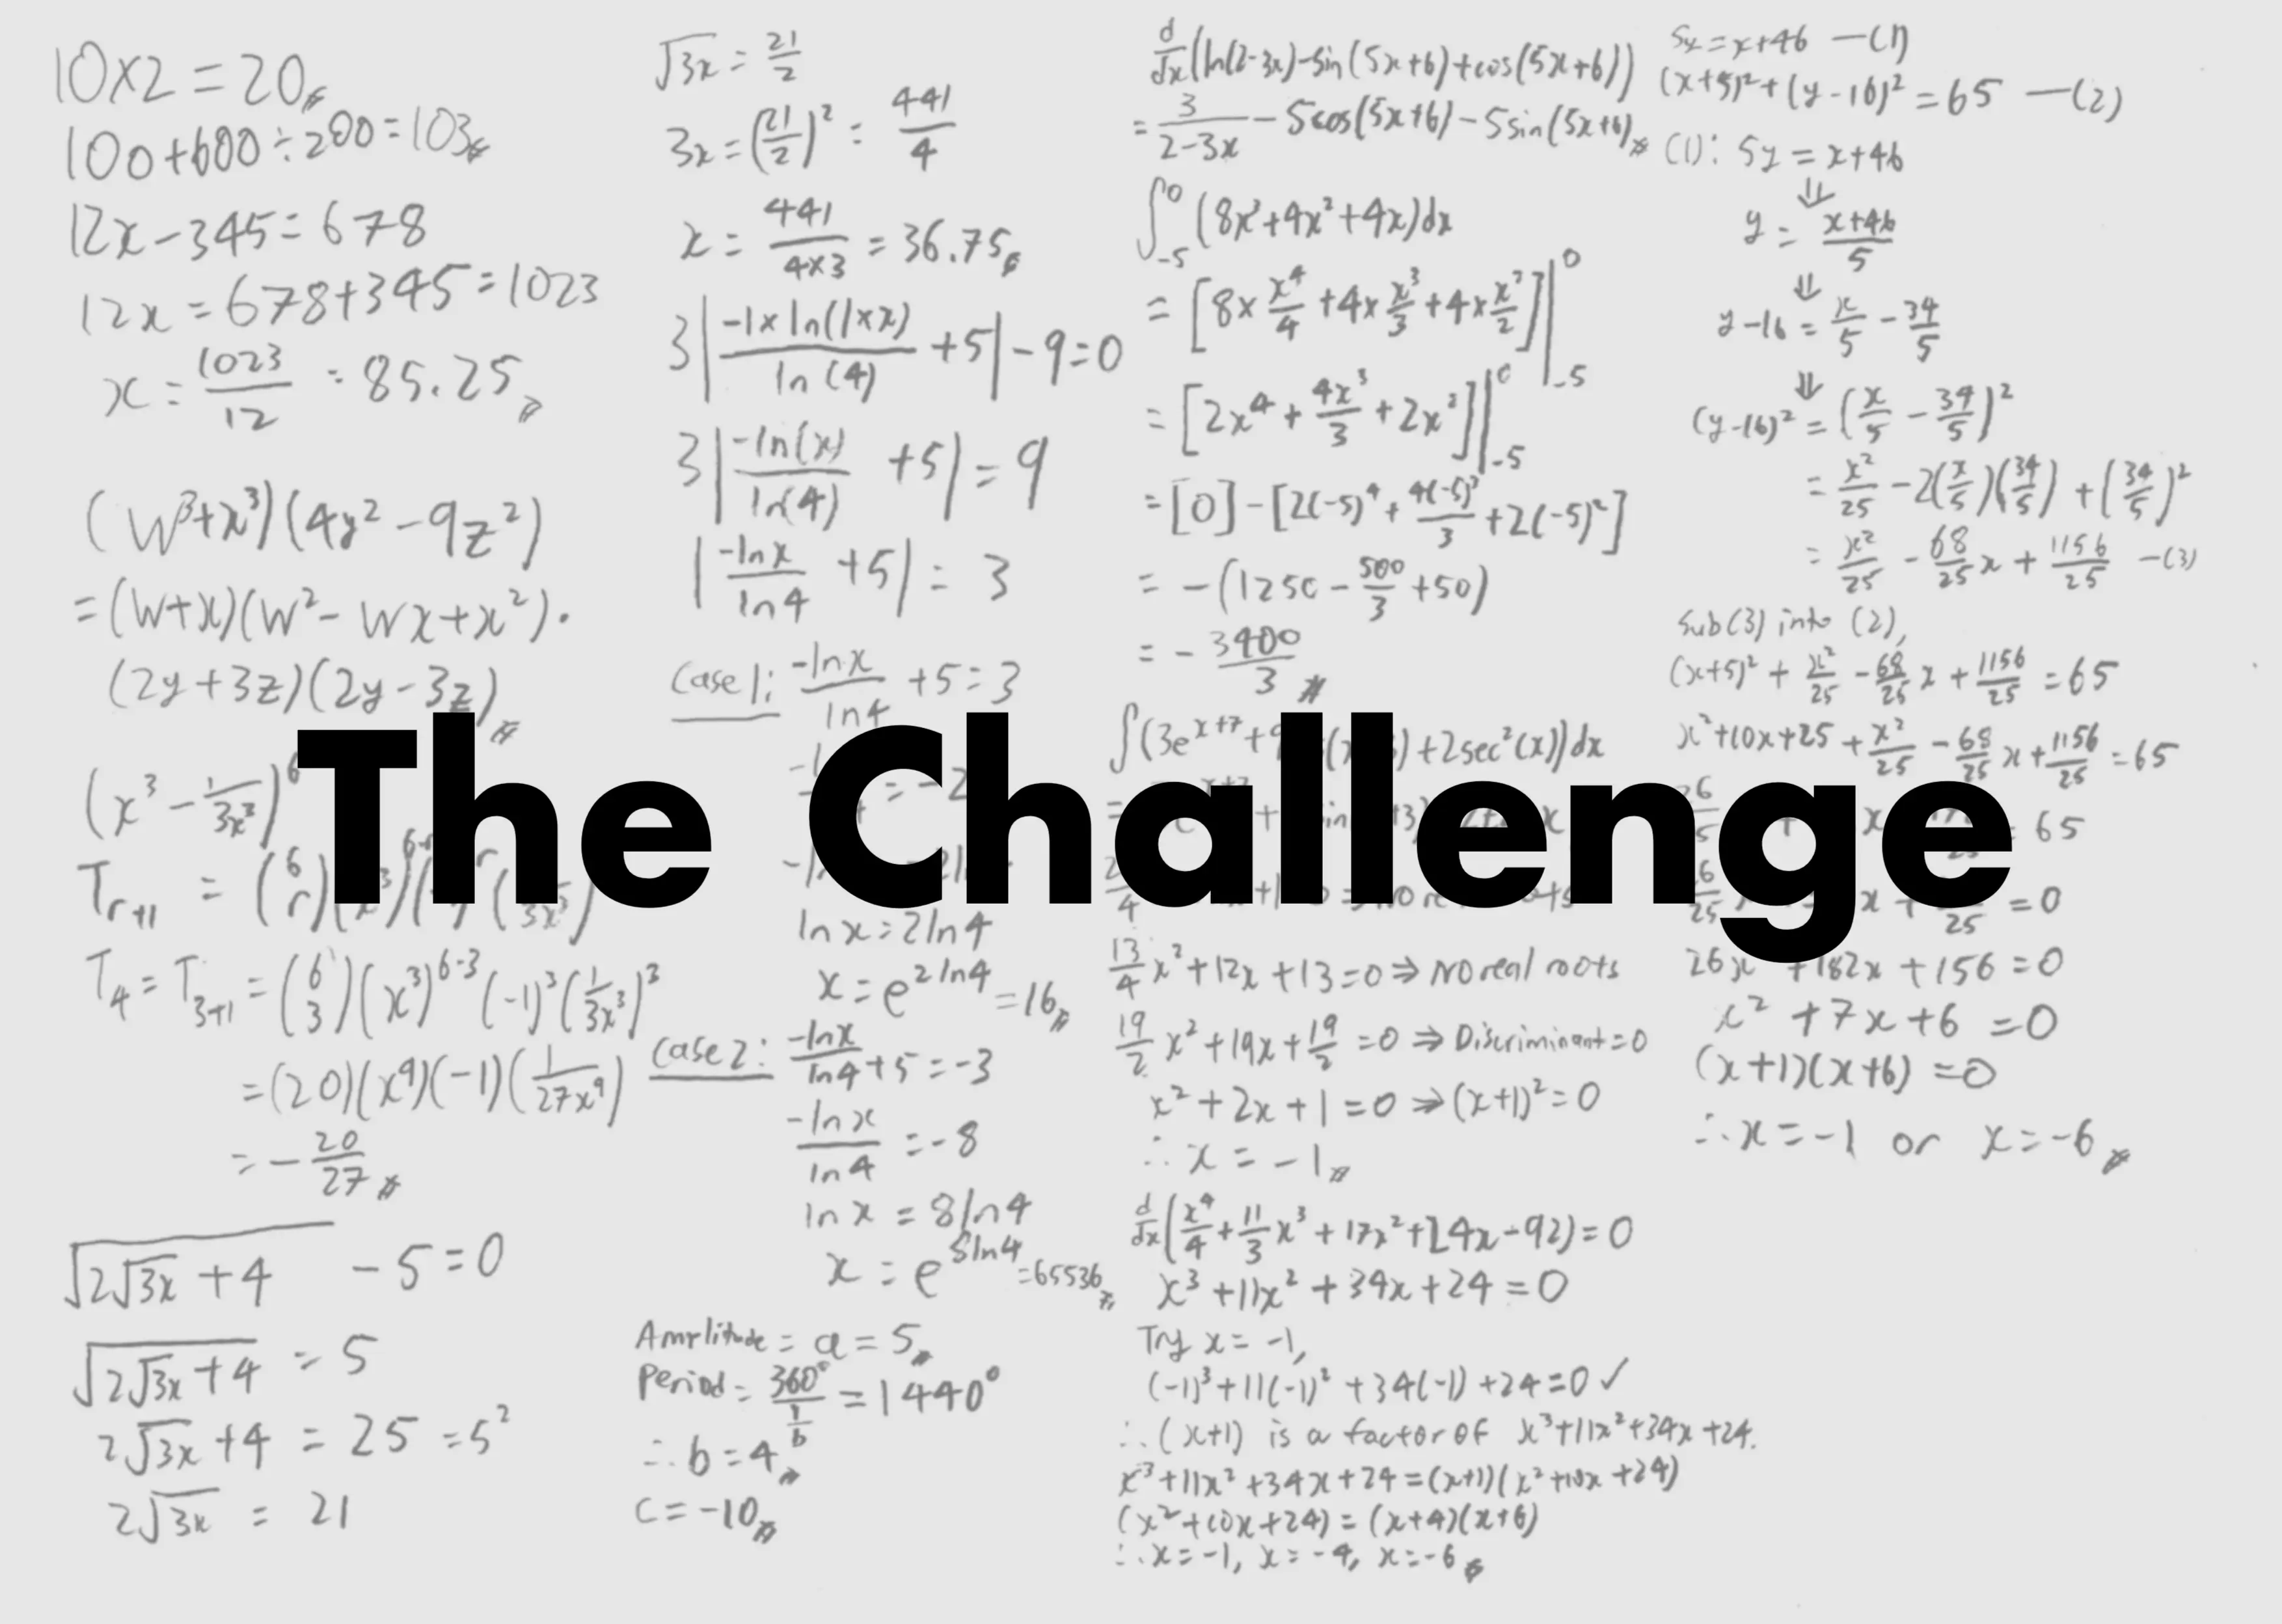 10×2=20
100+600÷200=103
12x-345=678
12x=678+345=1023
x=1023/12=85.25
(w³+x³)(4y²-9z²)
=(w+x)(w²-wx+x²)·
(2y+3z)(2y-3z)
(x³-1/3x³)⁶
T₄=T₃₊₁=(6 3)(x³)⁶⁻³(-1)³(1/3x³)³
=(20)(x⁹)(-1)(1/27x⁹)
=-20/27
√(2√3x+4)-5=0
√(2√3x+4)=5
2√3x+4=25=5²
2√3x=21
√3x=21/2
3x=(21/2)²=441/4
x=441/4×3=36.75
3|-1×ln(1×x)/ln(4)+5|-9=0
3|-ln(x)/ln(4)+5|=9
|-lnx/ln4+5|=3
Case1: -lnx/ln4+5=3
lnx=2ln4
x=e^(2ln4)=16
Case2: -lnx/ln4+5=-3
-lnx/ln4=-8
lnx=8ln4
x=e^(8ln4)=65536
Amplitude=a=5
Period=360°/(1/b)=1440°
∴b=4
c=-10
d/dx(ln(2-3x)-sin(5x+6)+cos(5x+6))
=3/2-3x-5cos(5x+6)-5sin(5x+6)
∫₋₅⁰(8x³+4x²+4x)dx
=[8×x⁴/4+4×x³/3+4×x²/2]|₋₅⁰
=[2x⁴+4x³/3+2x²]|₋₅⁰
=[0]-[2(-5)⁴+4(-5)³/3+2(-5)²]
=-(1250-500/3+50)
=-3400/3
+2sec²(x))dx
The Challenge
13/4x²+12x+13=0⇒No real roots
19/2x²+19x+19/2=0⇒Discriminant=0
x²+2x+1=0⇒(x+1)²=0
∴x=-1
d/dx(x⁴/4+11/3x³+17x²+24x-92)=0
x³+11x²+34x+24=0
Try x=-1,
(-1)³+11(-1)²+34(-1)+24=0✓
∴(x+1) is a factor of x³+11x²+34x+24.
x³+11x²+34x+24=(x+1)(x²+10x+24)
(x²+10x+24)=(x+4)(x+6)
∴x=-1, x=-4, x=-6
5y=x+46 —(1)
(x+5)²+(y-16)²=65 —(2)
(1): 5y=x+46
⇓
y=x+46/5
⇓
y-16=x/5-34/5
⇓
(y-16)²=(x/5-34/5)²
=x²/25-2(x/5)(34/5)+(34/5)²
=x²/25-68/25x+1156/25 —(3)
Sub(3) into (2),
(x+5)²+x²/25-68/25x+1156/25=65
x²+10x+25+x²/25-68/25x+1156/25=65
26x²+182x+156=0
x²+7x+6=0
(x+1)(x+6)=0
∴x=-1 or x=-6